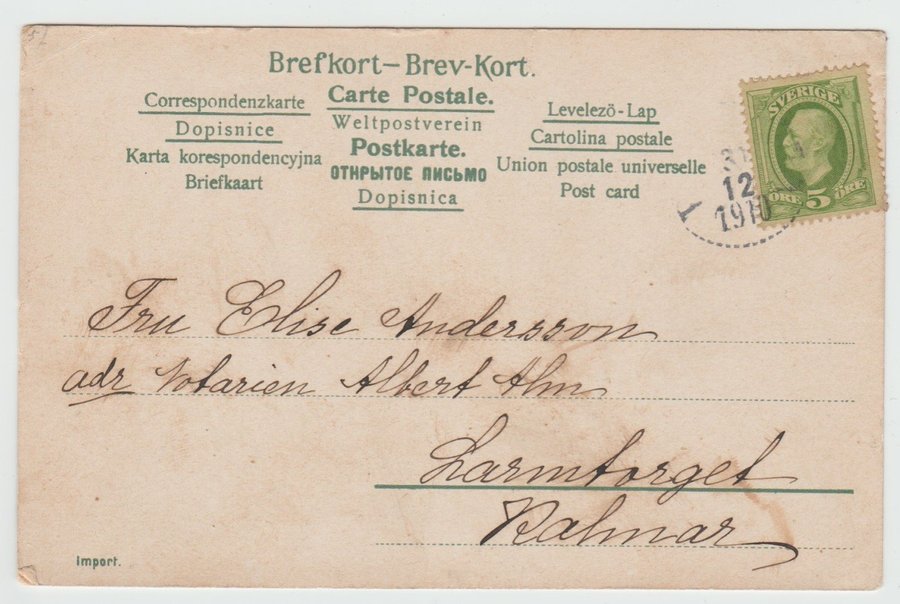 Brefkort–Brev-Kort.
Correspondenzkarte
Dopisnice
Karta korespondencyjna
Briefkaart
Carte Postale.
Weltpostverein
Postkarte.
ОТКРЫТОЕ ПИСЬМО
Dopisnica
Levelezö-Lap
Cartolina postale
Union postale universelle
Post card
SVERIGE
ÖRE 5 ÖRE
31
12
1910
1
Fru Elise Andersson
adr Notarien Albert Alm
Larmtorget
Kalmar
Import.